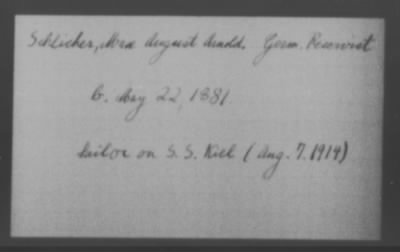 Schlicher, Max August Arnold. Germ. Reservist
b. May 22, 1881
Sailor on S. S. Kiel (Aug. 7. 1914)